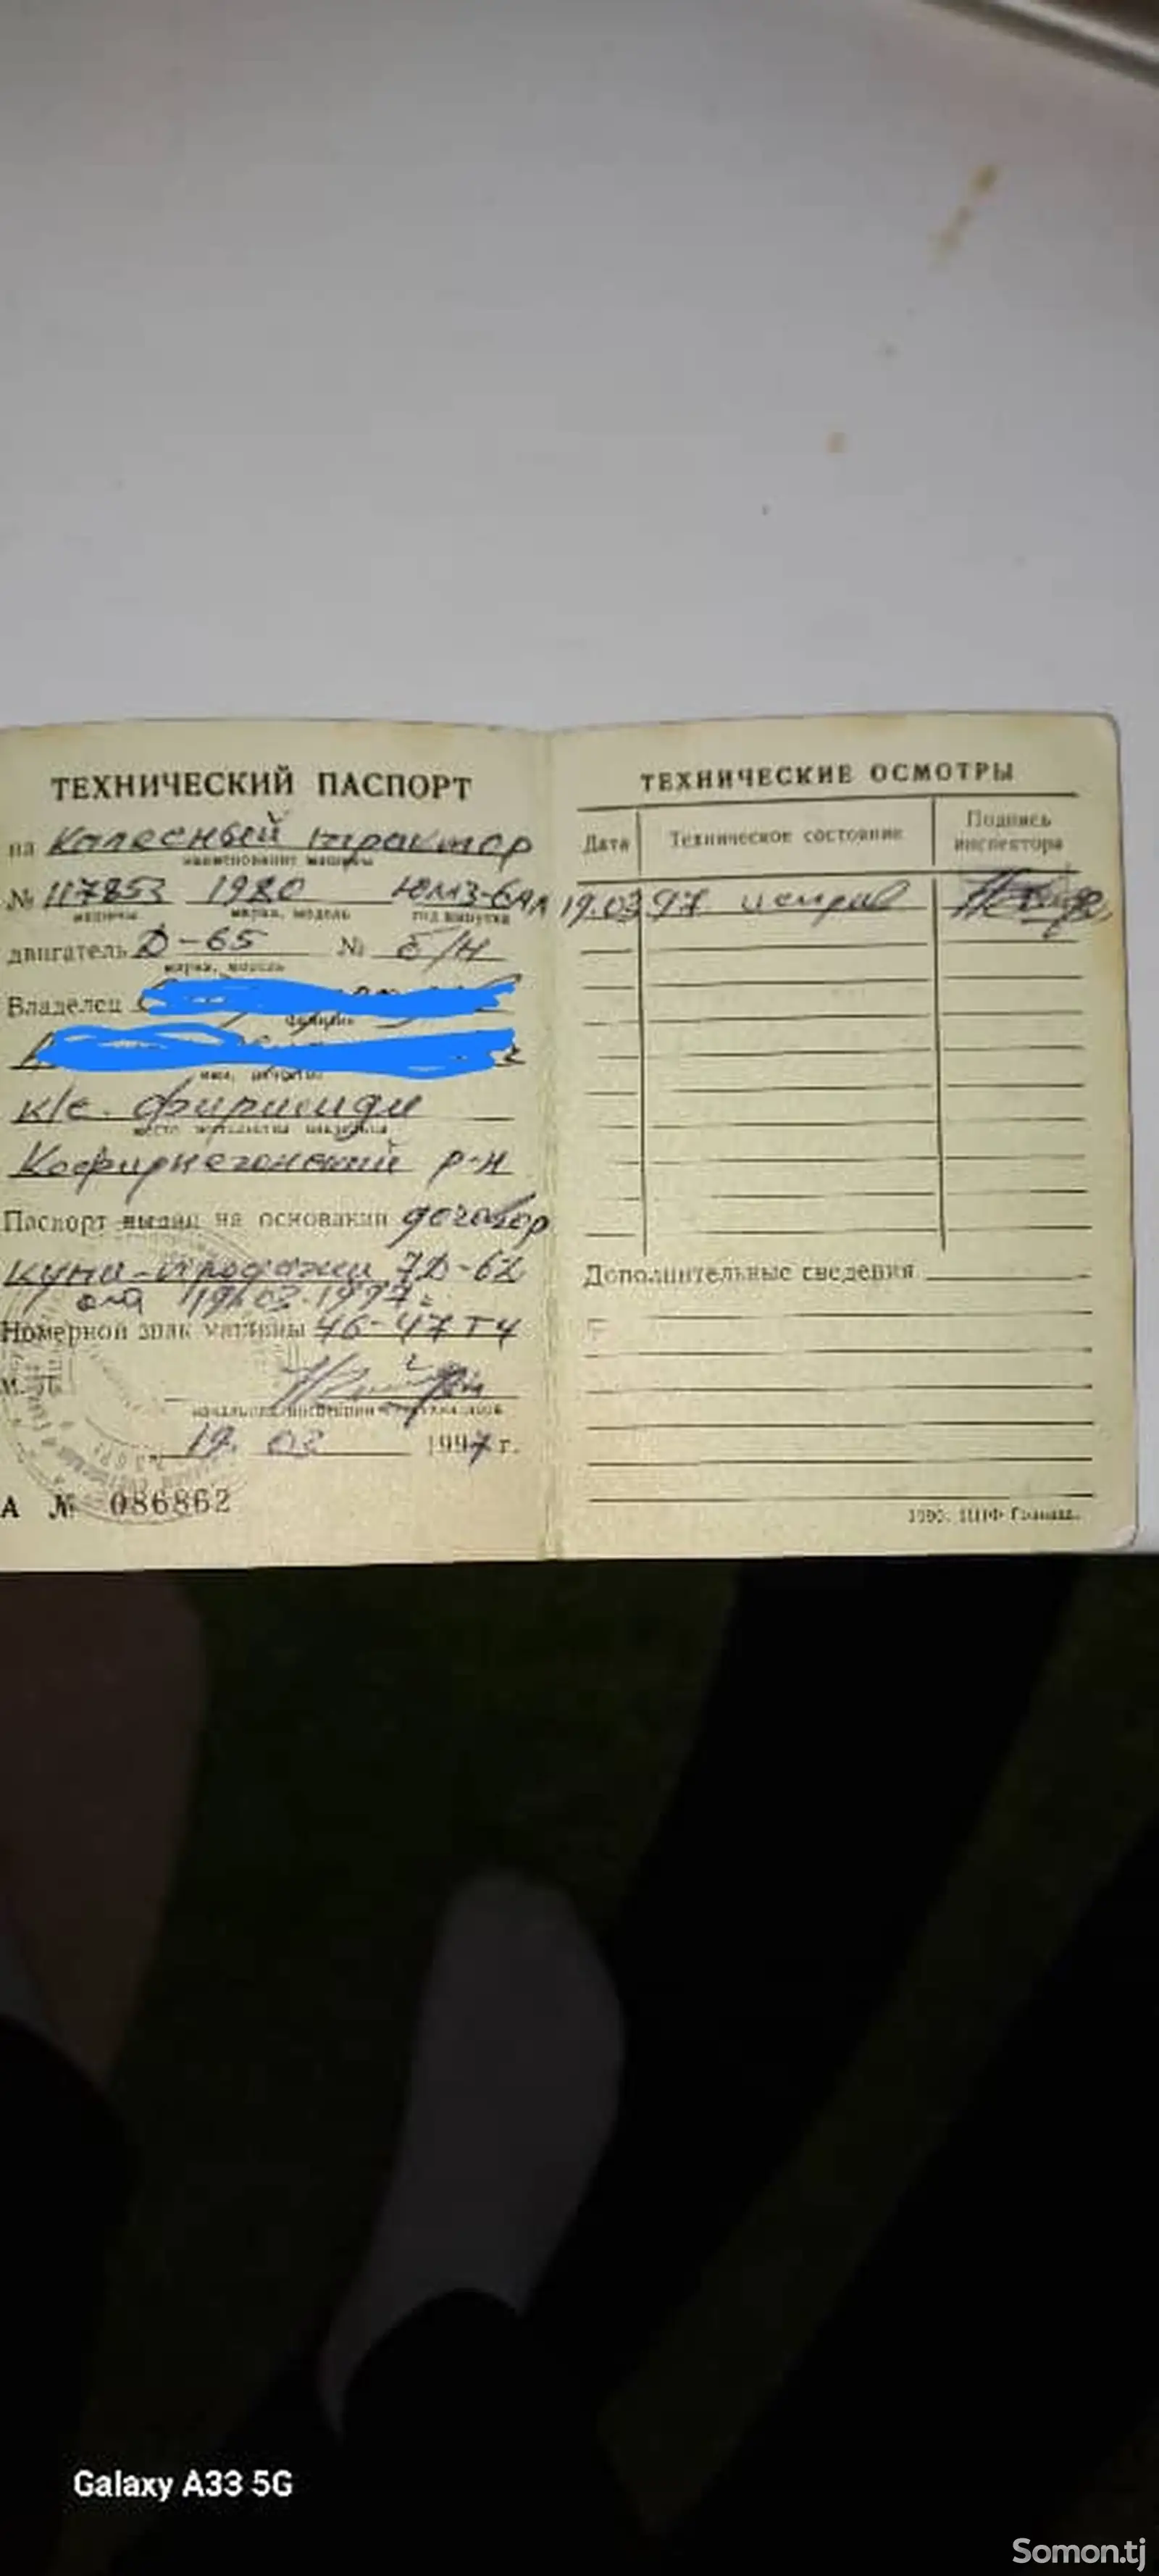 ТЕХНИЧЕСКИЙ ПАСПОРТ
на Калесный трактор
наименование машины
№ 117853 1980 ЮМЗ-6АЛ
машины марка, модель год выпуска
двигатель Д-65 № б/н
марка, модель
Владелец
фамилия
имя, отчество
к/с.
место жительства владельца
р-н
Паспорт выдан на основании договор
купли-продажи 7Д-62
от 19.03.1997г.
Номерной знак машины 46-47 ТЧ
М. П.
19. 03 1997 г.
А № 086862
ТЕХНИЧЕСКИЕ ОСМОТРЫ
Дата Техническое состояние Подпись инспектора
19.03 97 исправ
Дополнительные сведения
Galaxy A33 5G
Somon.tj